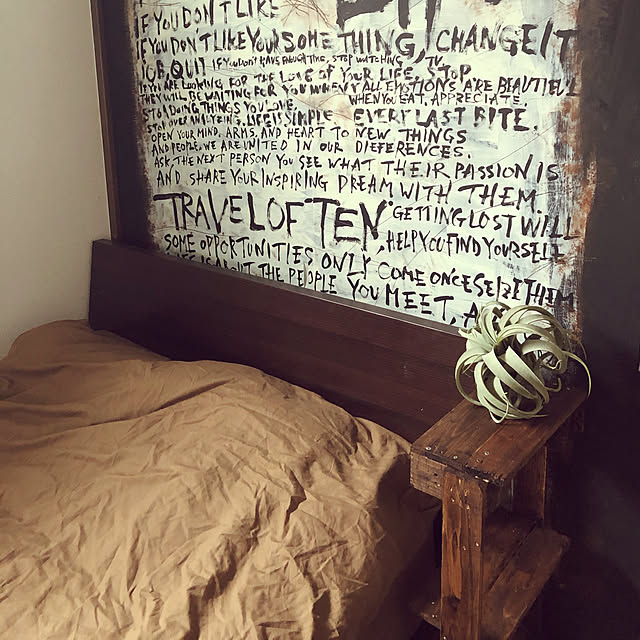 IF YOU DON'T LIKE
IF YOU DON'T LIKE YOUR SOMETHING, CHANGE IT
JOB, QUIT IF YOU DON'T HAVE ENOUGH TIME, STOP WATCHING TV
IF YOU ARE LOOKING FOR THE LOVE OF YOUR LIFE, STOP
THEY WILL BE WAITING FOR YOU WHEN YOU ALL EMOTIONS ARE BEAUTIFUL
START DOING THINGS YOU LOVE. WHEN YOU EAT, APPRECIATE
STOP OVER ANALYZING, LIFE IS SIMPLE EVERY LAST BITE.
OPEN YOUR MIND, ARMS, AND HEART TO NEW THINGS
AND PEOPLE, WE ARE UNITED IN OUR DIFFERENCES.
ASK THE NEXT PERSON YOU SEE WHAT THEIR PASSION IS
AND SHARE YOUR INSPIRING DREAM WITH THEM
TRAVEL OFTEN GETTING LOST WILL
HELP YOU FIND YOURSELF
SOME OPPORTUNITIES ONLY COME ONCE SEIZE THEM
LIFE IS ABOUT THE PEOPLE YOU MEET,